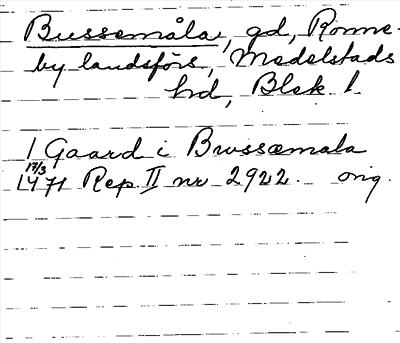 Bussemåla, gd, Ronne-
by landsförs, Medelstads
hd, Blek l.
1 Gaard i Brussæmala
17/3
1471 Rep II nr 2922. orig.